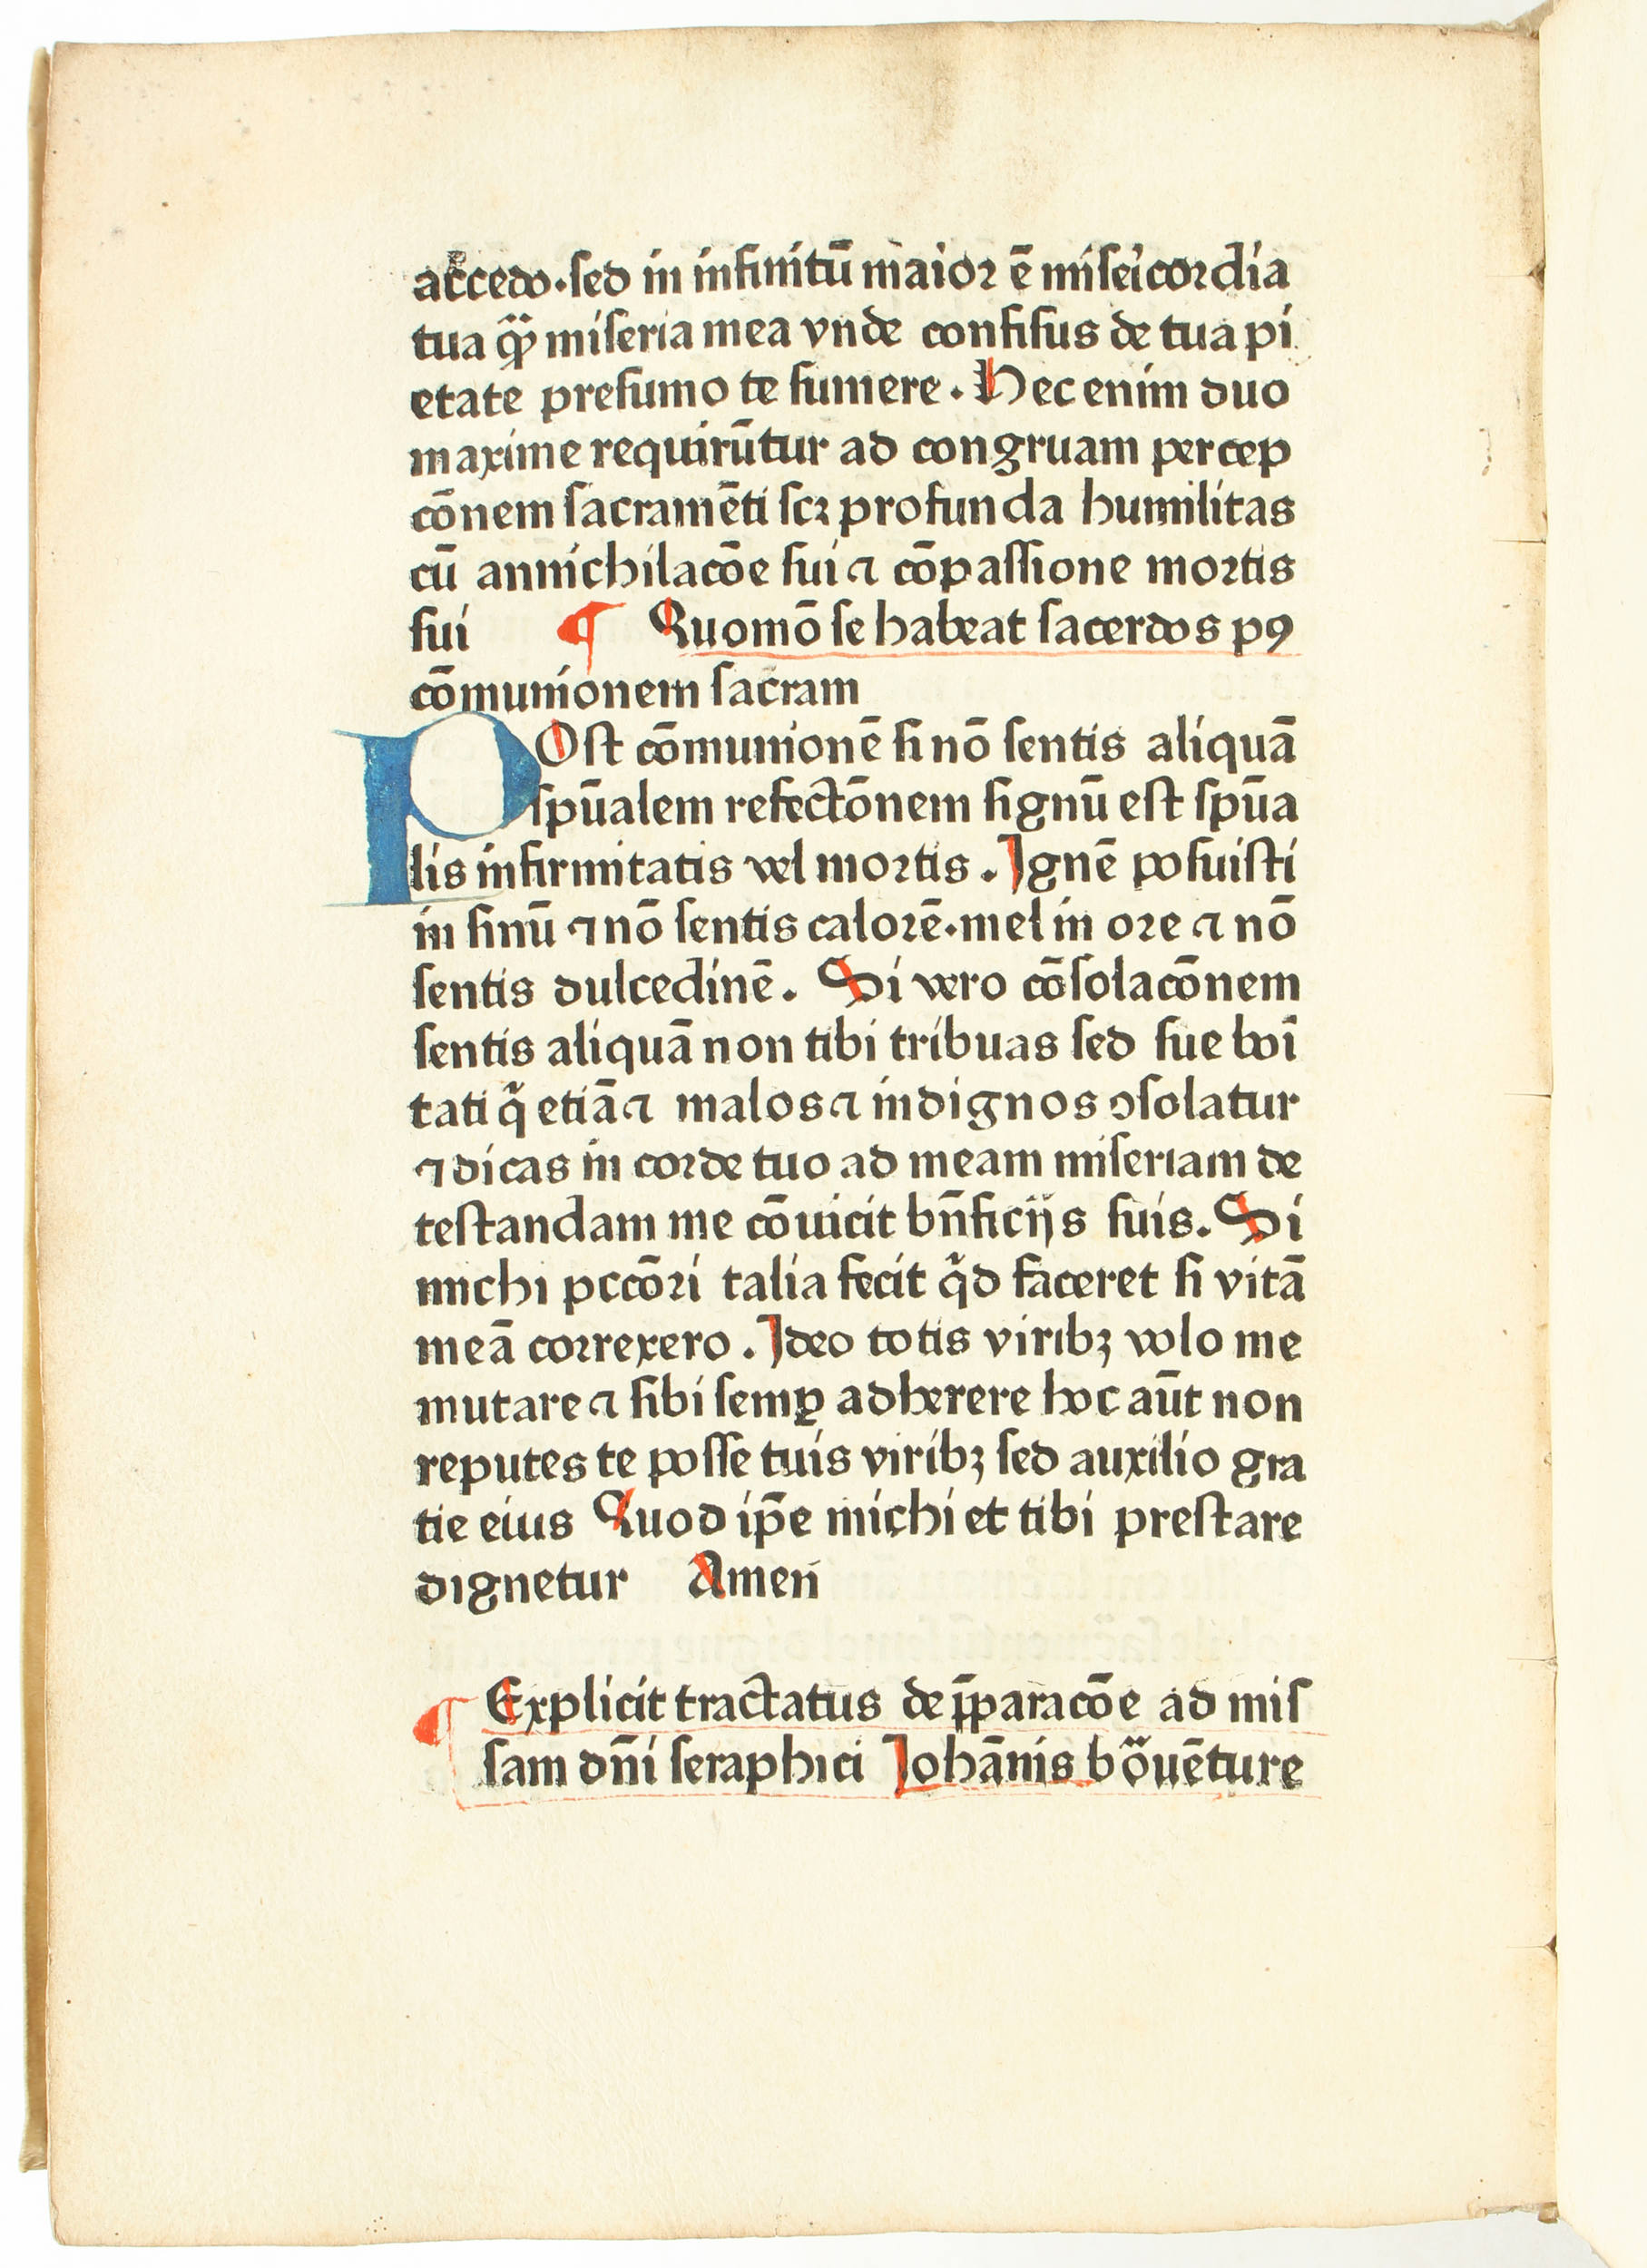 accedo·ſed in infinitū maior ē miſeicordia
tua qͣꝫ miſeria mea vnde confiſus de tua pi
etate preſumo te ſumere. Hec enim duo
maxime requirūtur ad congruam percep
cōnem ſacramēti ſcꝫ profunda humilitas
cū annichilacōe ſui ⁊ cōpaſſione mortis
ſui ¶ Quomō ſe habeat ſacerdos pꝰ
cōmunionem ſacram
POſt cōmunionē ſi nō ſentis aliquā
ſpūalem refectōnem ſignū eſt ſpūa
lis infirmitatis vel mortis. Ignē poſuiſti
in ſinū ⁊ nō ſentis calorē·mel in ore ⁊ nō
ſentis dulcedinē. Si vero cōſolacōnem
ſentis aliquā non tibi tribuas ſed ſue boī
tati q̄ etiā ⁊ malos ⁊ indignos ꝯſolatur
⁊ dicas in corde tuo ad meam miſeriam de
teſtandam me cōuicit bn̄ficijs ſuis. Si
michi pccōri talia fecit qͥd faceret ſi vitā
meā correxero. Ideo totis viribꝫ volo me
mutare ⁊ ſibi ſemꝑ adherere hoc aūt non
reputes te poſſe tuis viribꝫ ſed auxilio gra
tie eius Quod ip̄e michi et tibi preſtare
dignetur Amen
¶ Explicit tractatus de p̄paracōe ad miſ
ſam dn̄i ſeraphici Johānis bōuēture